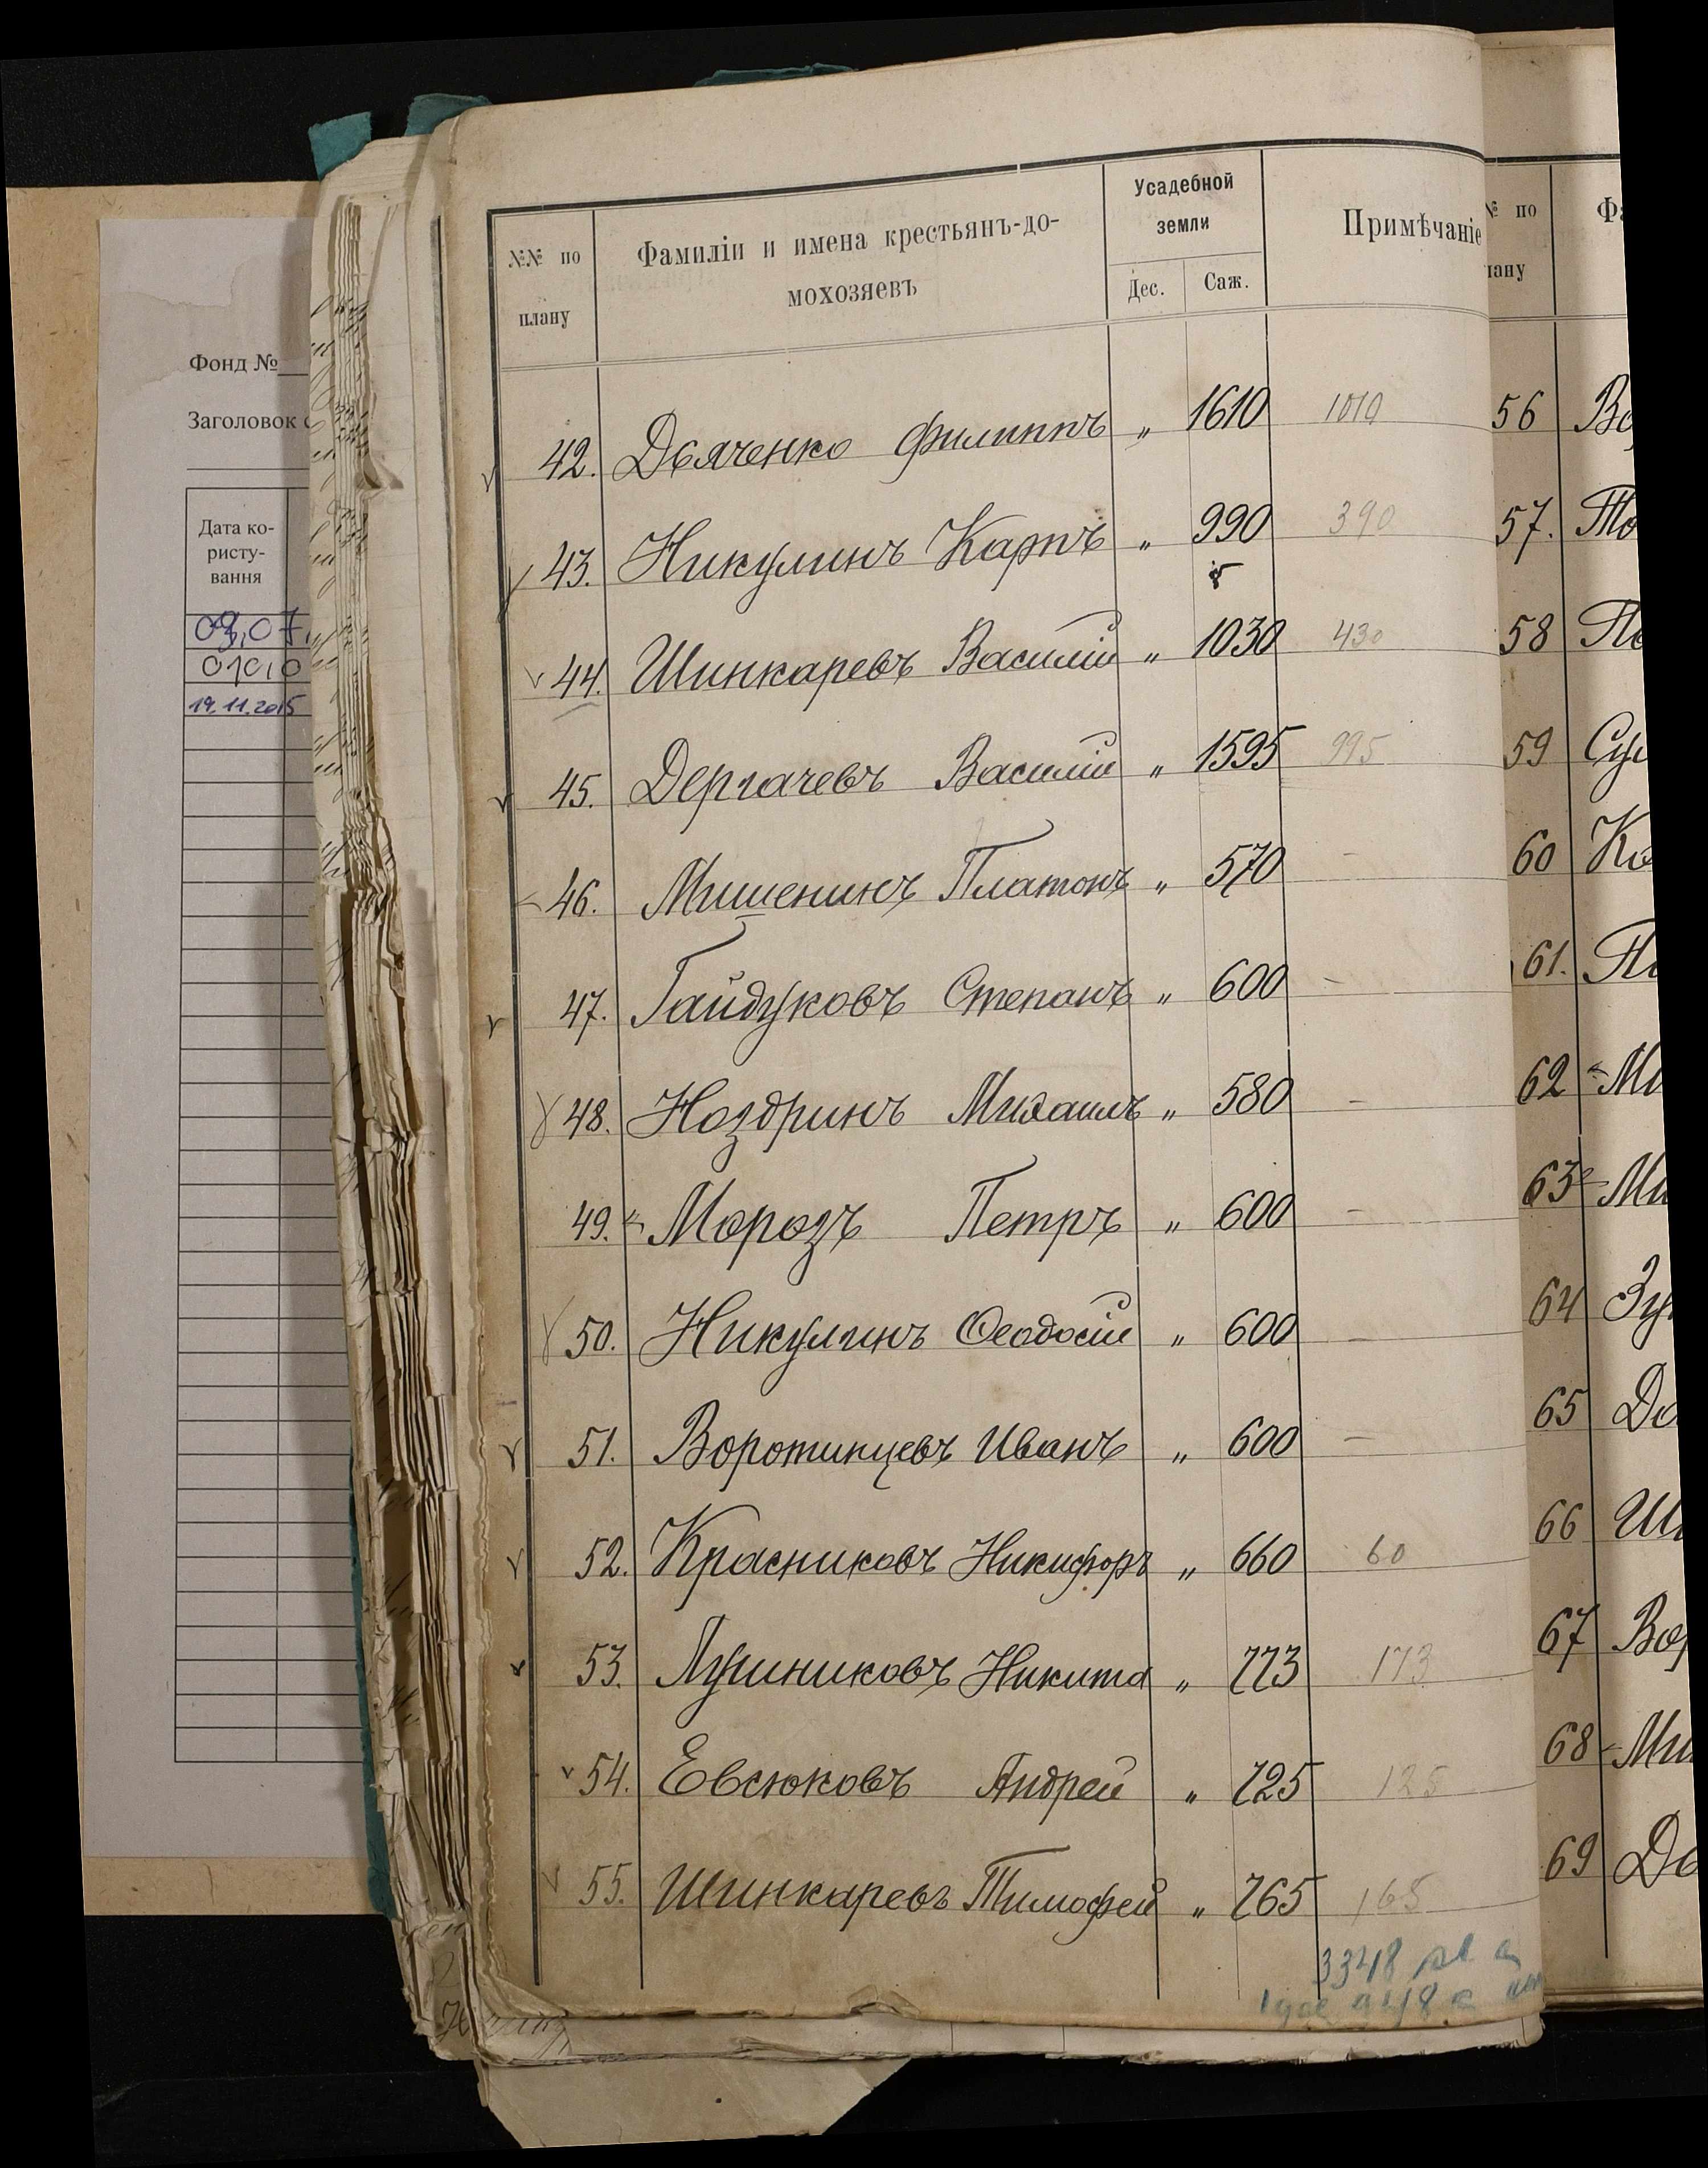 Фонд №
Заголовок
Дата ко-
ристу-
вання
09.07.
01010
19.11.2015
№№ по
плану
Фамиліи и имена крестьянъ-до-
мохозяевъ
Усадебной
земли
Дес. Саж.
Примѣчаніе
42. Дьяченко Филиппъ „ 1610 1010
43. Никулинъ Карпъ „ 990 390
44. Шинкаревъ Василій „ 1030 430
45. Дергачевъ Василій „ 1595 995
46. Мишенинъ Платонъ „ 570 -
47. Гайдуковъ Степанъ „ 600 -
48. Ноздринъ Михаилъ „ 580 -
49. Морозъ Петръ „ 600 -
50. Никулинъ Ѳеодосій „ 600 -
51. Воротинцевъ Иванъ „ 600 -
52. Красниковъ Никифоръ „ 660 60
53. Лушниковъ Никита „ 773 173
54. Евсюковъ Андрей „ 725 125
55. Шинкаревъ Тимофей „ 765 165
3348
№ по
лану
56
57.
58
59
60
61.
62
63
64
65
66
67
68
69